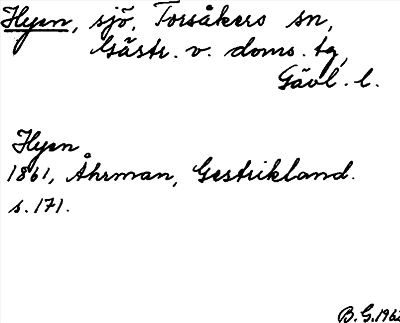 Hyen, sjö, Torsåkers sn,
Gästr. v. doms. tg,
Gävl. l.
Hyen
1861, Åhrman, Gestrikland.
s. 171.
B. G. 196